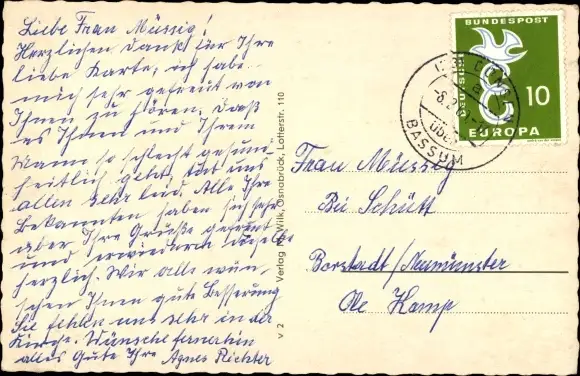 Liebe Frau Müssig!
Herzlichen Dank für Ihre
liebe Karte, ich habe
mich sehr gefreut von
Ihnen zu hören. Daß
es Ihnen und Ihrem
Mann so schlecht gesund-
heitlich geht, tut uns
allen sehr leid. Alle Ihre
Bekannten haben sich sehr
über Ihre Grüße gefreut
und erwiedern dieselbe
herzlich. Wir alle wün-
schen Ihnen gute Besserung
Sie fehlen uns sehr in der
Kirche. Wünsche fernerhin
alles Gute Ihre Agnes Richter
Verlag Wilk, Osnabrück, Lotterstr. 110
V 2
BUNDESPOST
10
EUROPA
über
BASSUM
Frau Müssig
Bei Schütt
Borstadt/Neumünster
Ole Kamp